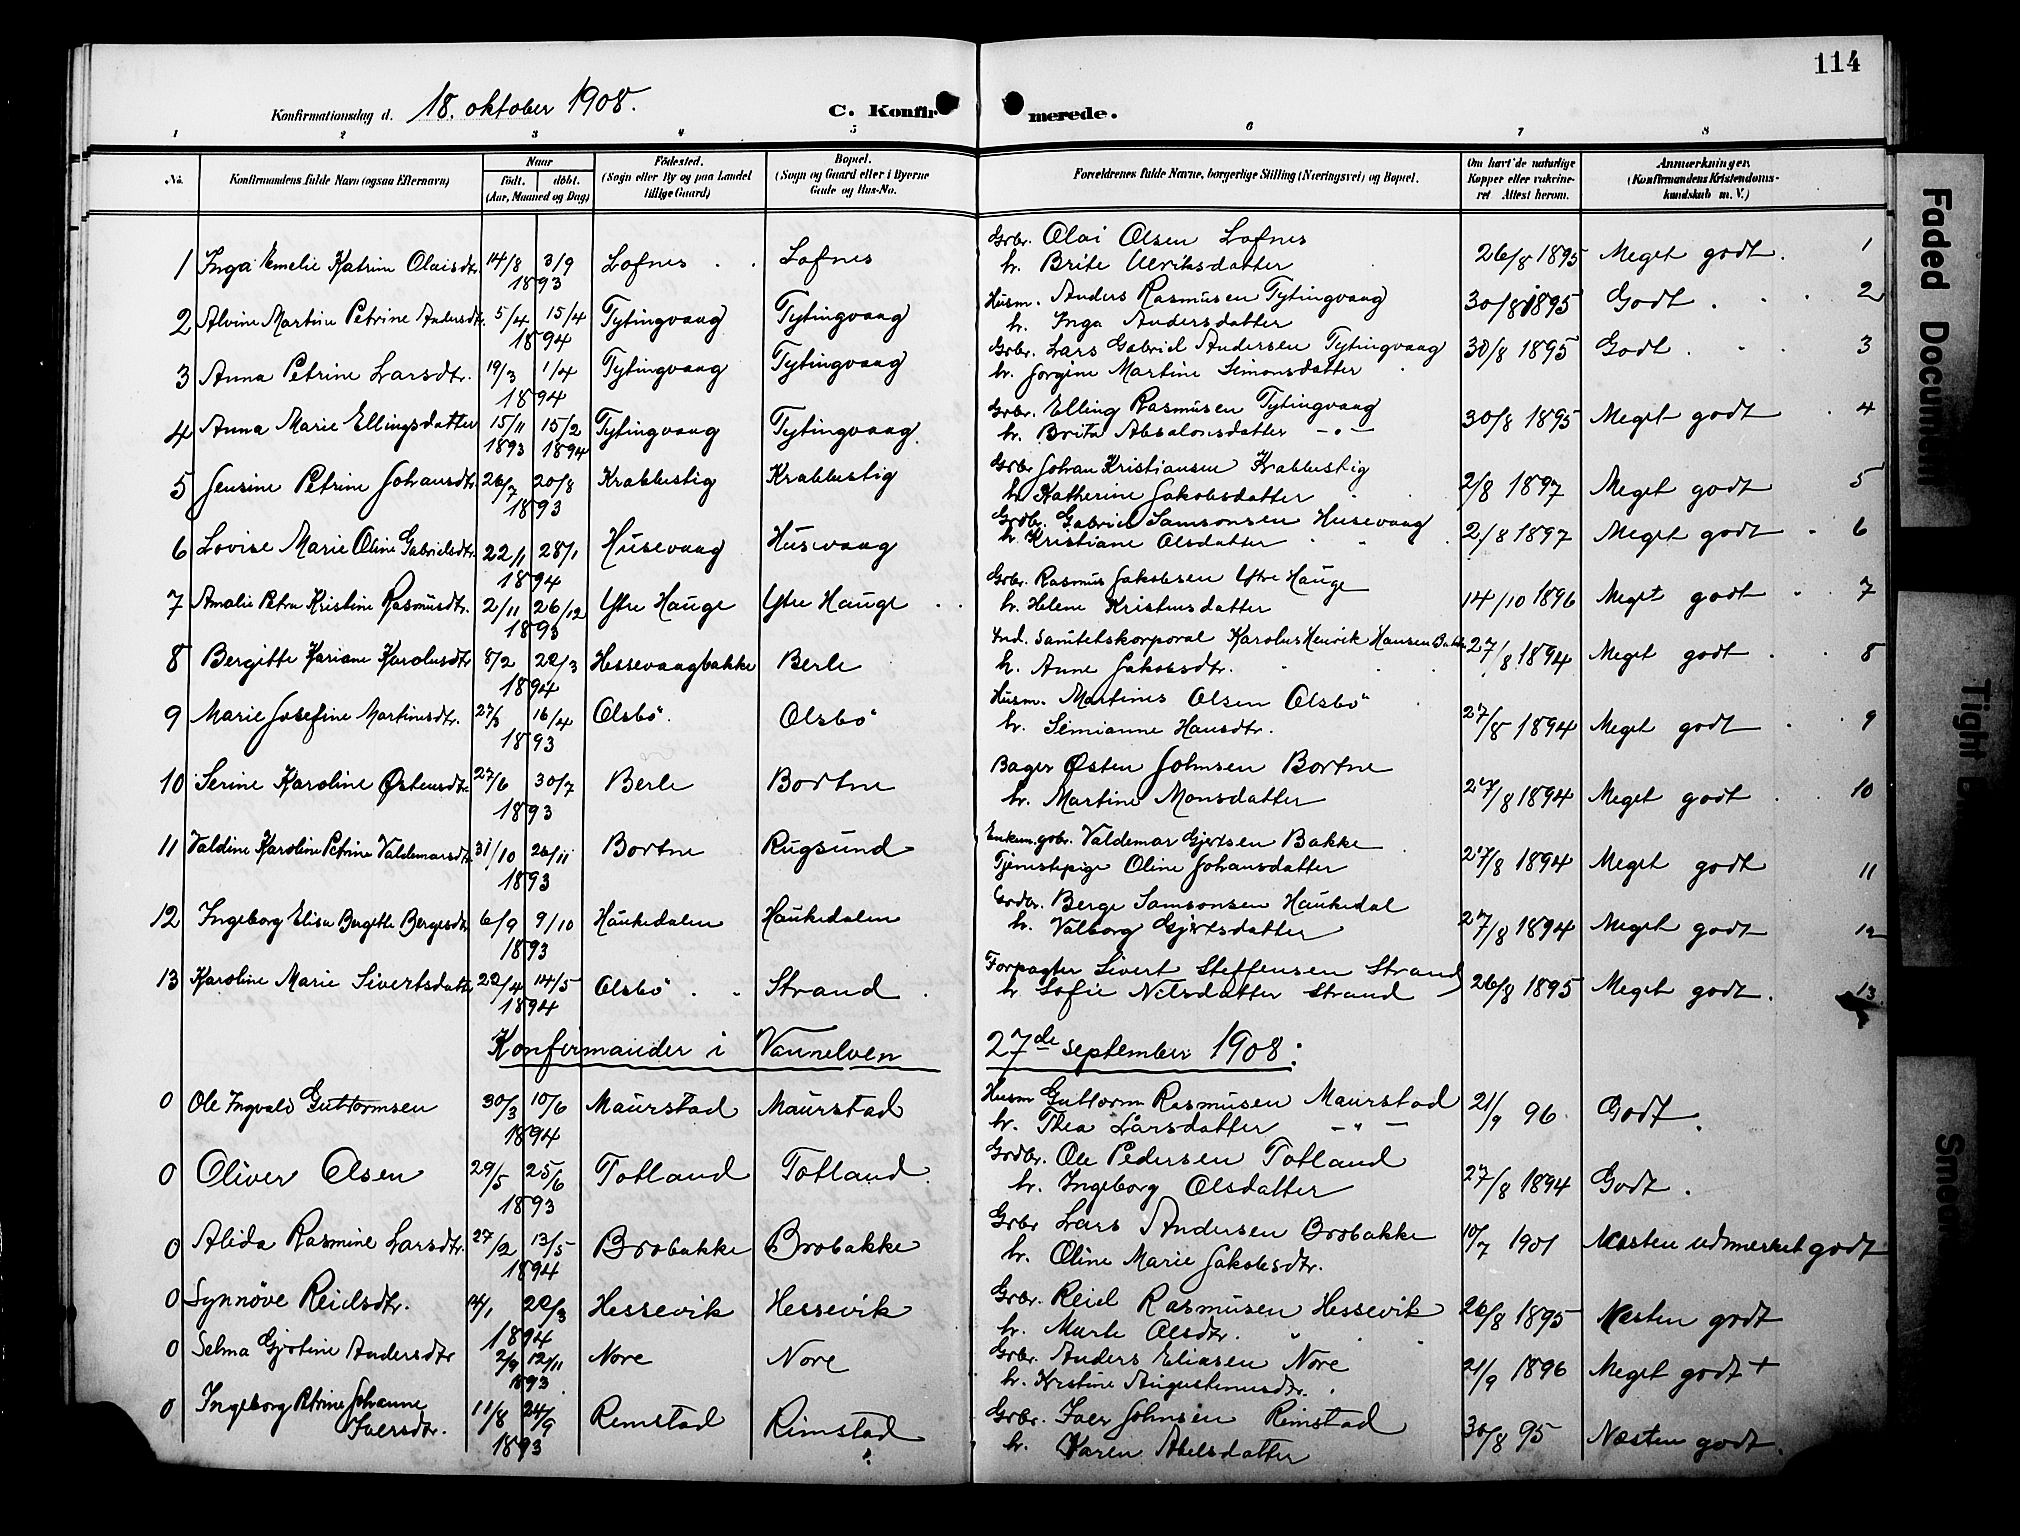 114
Konfirmationsdag d. 18. oktober 1908. C. Konfirmerede.
1 2 3 4 5 6 7 8
No. Konfirmandens fulde Navn (ogsaa Efternavn) Naar født. døbt. (Aar, Maaned og Dag) Födested. (Sogn eller By og paa Landet tillige Gaard) Bopæl. (Sogn og Gaard eller i Byerne Gade og Hus-No. Forældrenes fulde Navne, borgerlige Stilling (Næringsvei) og Bopæl. Om havt de naturlige Kopper eller vakcineret Attest herom. Anmærkninger. (Konfirmandens Kristendomskundskab m. V.)
1 Inga Emelie Katrine Olaisdtr. 14/8 3/9 1893 Lofnes Lofnes Grbr. Olai Olsen Lofnes 26/8 1895 Meget godt. 1
h. Brite Ulriksdatter
2 Alvine Martine Petrine Andersdtr. 5/4 15/4 1894 Tytingvaag Tytingvaag Husm. Anders Rasmusen Tytingvaag 30/8 1895 Godt. 2
h. Inga Andersdatter
3 Anna Petrine Larsdtr. 19/3 1/4 1894 Tytingvaag Tytingvaag Grbr. Lars Gabriel Andersen Tytingvaag 30/8 1895 Godt. 3
h. Jorgine Martine Simonsdatter
4 Anna Marie Ellingsdatter 15/11 1893 15/2 1894 Tytingvaag Tytingvaag. Grbr. Elling Rasmusen Tytingvaag 30/8 1895 Meget godt 4
h. Brita Absalonsdatter -"-
5 Jensine Petrine Johansdtr 26/7 20/8 1893 Krabbestig Krabbestig Grbr Johan Kristiansen Krabbestig 2/8 1897 Meget godt 5
h. Katherine Jakobsdatter
6 Lovise Marie Oline Gabrielsdtr. 22/1 28/1 1894 Husevaag Husevaag Grdbr. Gabriel Samsonsen Husevaag 2/8 1897 Meget godt 6
h. Kristiane Olsdatter
7 Amalie Petra Kristine Rasmusdtr. 2/11 26/12 1893 Ytre Hauge Ytre Hauge Grbr. Rasmus Jakobsen Ytre Hauge 14/10 1896 Meget godt 7
h. Helene Kristensdatter
8 Bergitte Kariane Karolusdtr 8/2 22/3 1894 Hessevaagbakke Berle Ind. Sanitetskorporal Karolus Henrik Hansen 27/8 1894 Meget godt 8
h. Anne Jakobsdtr.
9 Marie Josefine Martinusdtr. 27/3 16/4 1893 Olsbö. Olsbö Husm. Martinus Olsen Olsbö 27/8 1894 Meget godt 9
h. Simianne Hansdtr.
10 Serine Karoline Østensdtr. 27/6 30/7 1893 Berle Bortne Bager Østen Johnsen Bortne 27/8 1894 Meget godt 10
h. Martine Monsdatter
11 Valdine Karoline Petrine Valdemarsdtr. 31/10 26/11 1893 Bortne Rugsund Enkem. gbr. Valdemar Gjertsen Bakke 27/8 1894 Meget godt 11
Tjenestepige Oline Johansdatter
12 Ingeborg Elisa Bergitte Bergesdtr 6/9 9/10 1893 Haukedalen Haukedalen Grdbr. Berge Samsonsen Haukedal 27/8 1894 Meget godt 12
h. Valborg Gjertsdatter
13 Karoline Marie Sivertsdatter 22/4 14/5 1894 Olsbö Strand Forpagter Sivert Steffensen Strand 26/8 1895 Meget godt. 13.
h Sofie Nilsdatter Strand
Konfirmander i Vannelven 27de september 1908:
0 Ole Ingvald Guttormsen 30/3 10/6 1894 Maurstad Maurstad Husm Guttorm Rasmusen Maurstad 21/9 96. Godt.
h. Thea Larsdatter -"-
0 Oliver Olsen 29/5 25/6 1893 Totland Totland. Grdbr. Ole Pedersen Totland 27/8 1894 Godt.
h. Ingeborg Olsdatter
0 Alida Rasmine Larsdtr. 27/2 13/5 1894 Brobakke Brobakke Grbr Lars Andersen Brobakke 10/7 1901 Næsten udmerket godt
h. Oline Marie Jakobsdtr.
0 Synnöve Reidsdtr. 14/1 22/3 1894 Hessevik Hessevik Grbr. Reid Rasmusen Hessevik 26/8 1895 Næsten godt
h. Marte Olsdtr.
0 Selma Gjertine Andersdtr 2/9 12/11 1893. Nore Nore Grbr. Anders Eliasen Nore 21/9 1896 Meget godt +
h. Kristine Augustinusdtr.
0 Ingeborg Petrine Johanne Iversdtr. 11/8 24/9 1893 Rimstad Rimstad Grbr. Iver Johnsen Rimstad 30/8 95 Næsten godt.
h. Karen Abelsdatter
Faded Document
Tight B
Smo